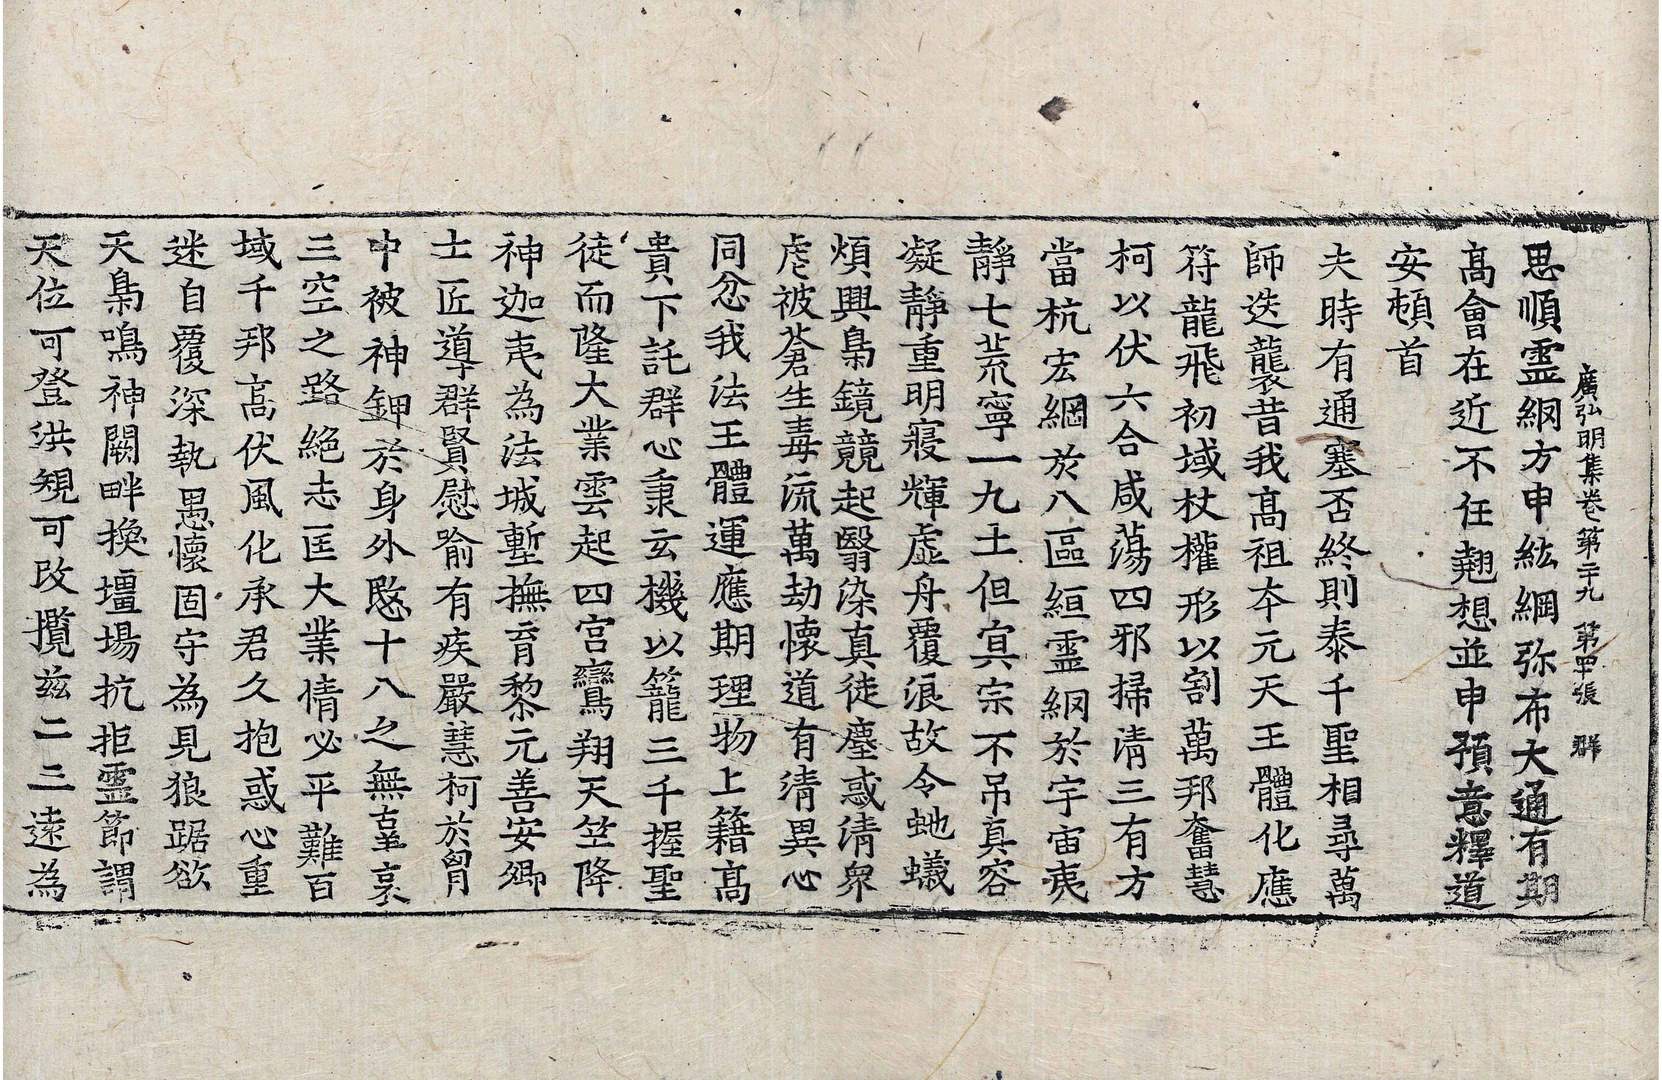 廣弘明集卷第二十九 第四十張 群
思順靈網方申紘綱弥布大通有期
髙會在近不任翹想並申預意釋道
安頓首
夫時有通塞否終則泰千聖相尋萬
師迭襲昔我髙祖本元天王體化應
符龍飛初域杖權形以割萬邦奮慧
柯以伏六合咸蕩四邪掃清三有方
當杭宏綱於八區絙靈網於宇宙夷
靜七荒寧一九土但冥宗不吊真容
凝靜重明寢輝虛舟覆浪故令虵蟻
煩興梟鏡競起翳染真徒塵惑清衆
虐被蒼生毒流萬劫懷道有清異心
同忿我法王體運應期理物上籍髙
貴下託群心秉玄機以籠三千握聖
徒而隆大業雲起四宮鸞翔天竺降
神迦夷為法城塹撫育黎元善安卿
士匠導群賢慰喻有疾嚴慧柯於胷
中被神鉀於身外愍十八之無辜哀
三空之路絕志匡大業情必平難百
域千邦髙伏風化承君久抱惑心重
迷自覆深執愚懷固守為見狼踞欲
天梟鳴神闕畔換壃場抗拒靈節謂
天位可登洪規可改攬茲二三遠為